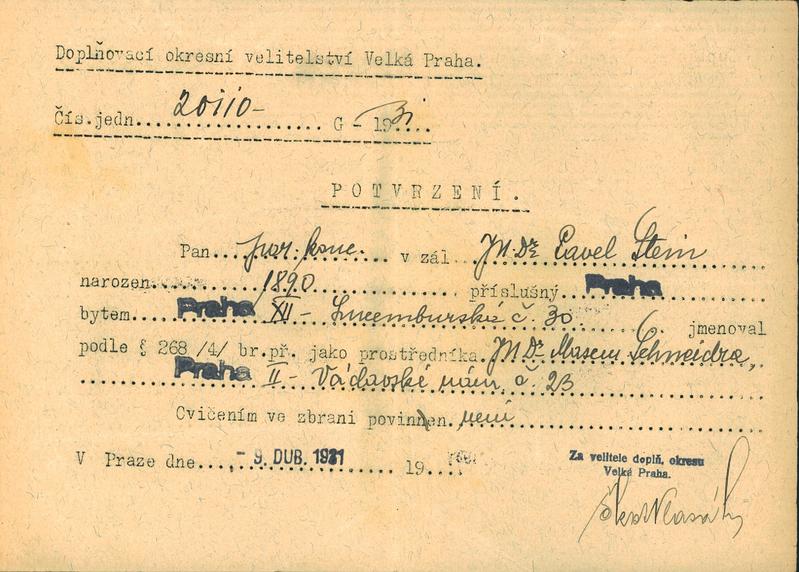 Doplňovací okresní velitelství Velká Praha.
Čís.jedn. 20110- G - 1931
POTVRZENÍ.
Pan por. konc. v zál JUDr Pavel Stein
narozen 1890 příslušný Praha
bytem Praha XII - Lucemburská č. 30 jmenoval
podle § 268 /4/ br.př. jako prostředníka JUDr Schneidra,
Praha II - Václavské nám. č. 23
Cvičením ve zbrani povinnen není
V Praze dne - 9. DUB. 1931 19
Za velitele doplň. okresu
Velká Praha.